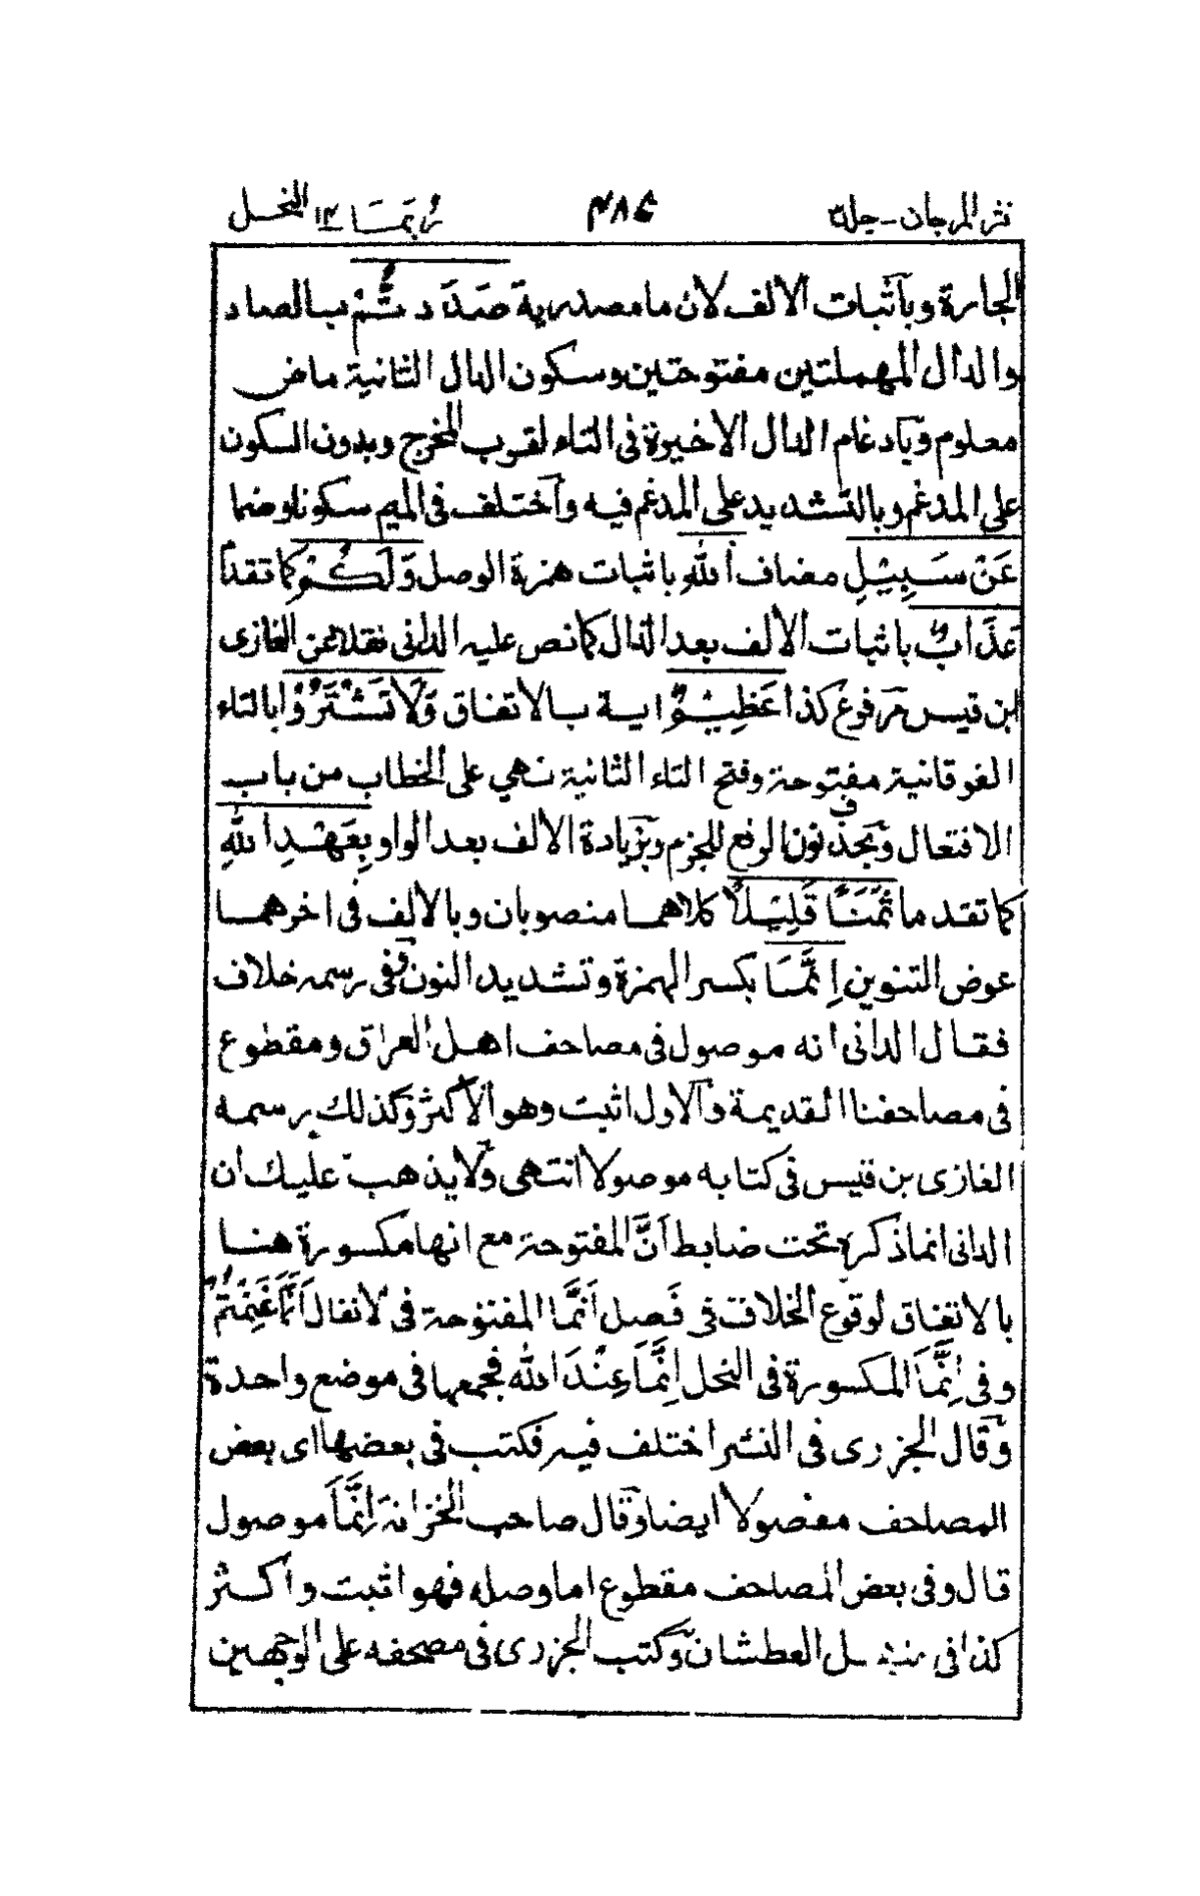 نثر المرجان - جلد ٣ ٤٨٤ رُبَمَا ١٤ النحل
الجارة وبآثبات الالف لان ما مصدرية صَدَدتُّمْ بالصاد
والدال المهملتين مفتوحتين وسكون الدال الثانية ماض
معلوم وبادغام الدال الاخيرة فى التاء لقرب المخرج وبدون السكون
على المدغم وبالتشديد على المدغم فيه وآختلف فى الميم سكونا وضما
عَنْ سَبِيْلِ مضاف اللهِ باثبات همزة الوصل وَلَكُمْ كما تقدم
عَذَابٌ باثبات الالف بعد الذال كما نص عليه الدانى نقلا عن الغازى
ابن قيس مرفوع كذا عَظِيْمٌ اية بالاتفاق وَلَا تَشْتَرُوْا بالتاء
الفوقانية مفتوحة وفتح التاء الثانية نهي على الخطاب من باب
الافتعال وبحذف نون الرفع للجزم وبزيادة الالف بعد الواو بِعَهْدِ اللهِ
كما تقدم ما ثَمَنًا قَلِيْلًا كلاهما منصوبان وبالالف فى اخرهما
عوض التنوين اِنَّمَا بكسر الهمزة وتشديد النون وفى رسمه خلاف
فقال الدانى انه موصول فى مصاحف اهل العراق ومقطوع
فى مصاحفنا القديمة والاول اثبت وهو الاكثر وكذلك رسمه
الغازى بن قيس فى كتابه موصولا انتهى ولا يذهب عليك ان
الدانى انما ذكره تحت ضابط اَنَّ المفتوحة مع انها مكسورة هنا
بالاتفاق لوقوع الخلاف فى فصل اَنَّمَا المفتوحة فى الانفال اَنَّمَا غَنِمْتُمْ
وفى اِنَّمَا المكسورة فى النحل اِنَّمَا عِنْدَ الله فجمعها فى موضع واحدة
وقال الجزرى فى النشر اختلف فيه فكتب فى بعضها اى بعض
المصاحف مفصولا ايضا وقال صاحب الخزانة اِنَّمَا موصول
قال وفى بعض المصاحف مقطوع اما وصله فهو اثبت واكثر
كذا فى منهل العطشان وكتب الجزرى فى مصحفه على الوجهين